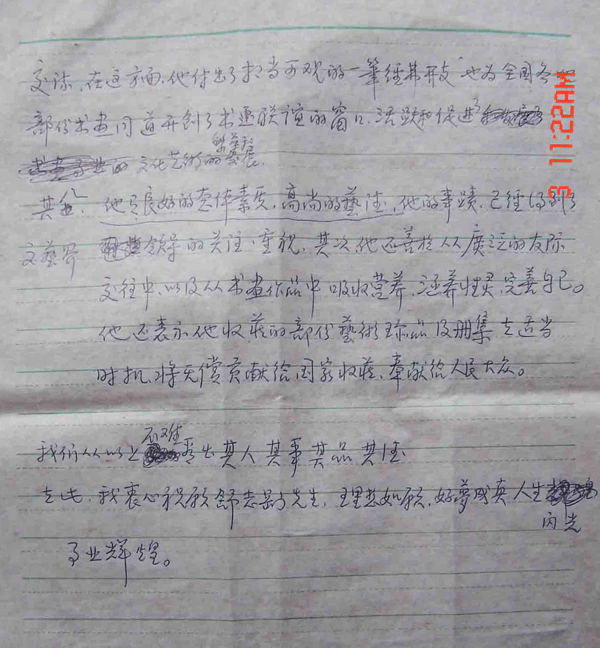 交际,在这方面,他付出了相当可观的一筆经费开支,他为全国各
部份书画同道开创了书画联谊的窗口,活跃和促进了
文化艺術的繁荣發展。
其 他良好的气体素质,高尚的藝德,他的事蹟,已经得到了
文藝界 领导的关注、重視,其次他还善於从廣泛的友际
交往中,以及从书画作品中吸收营养,涵养性灵,完善自己。
他还表示他收莊的部份藝術珍品及册集在适当
时机,将无偿贡献给国家收莊,奉献给人民大众。
我们从以上不难看出其人其事其品其德
在此,我衷心祝愿 先生,理想如願,好夢成真人生
闪光
事业辉煌。
3 11:22AM